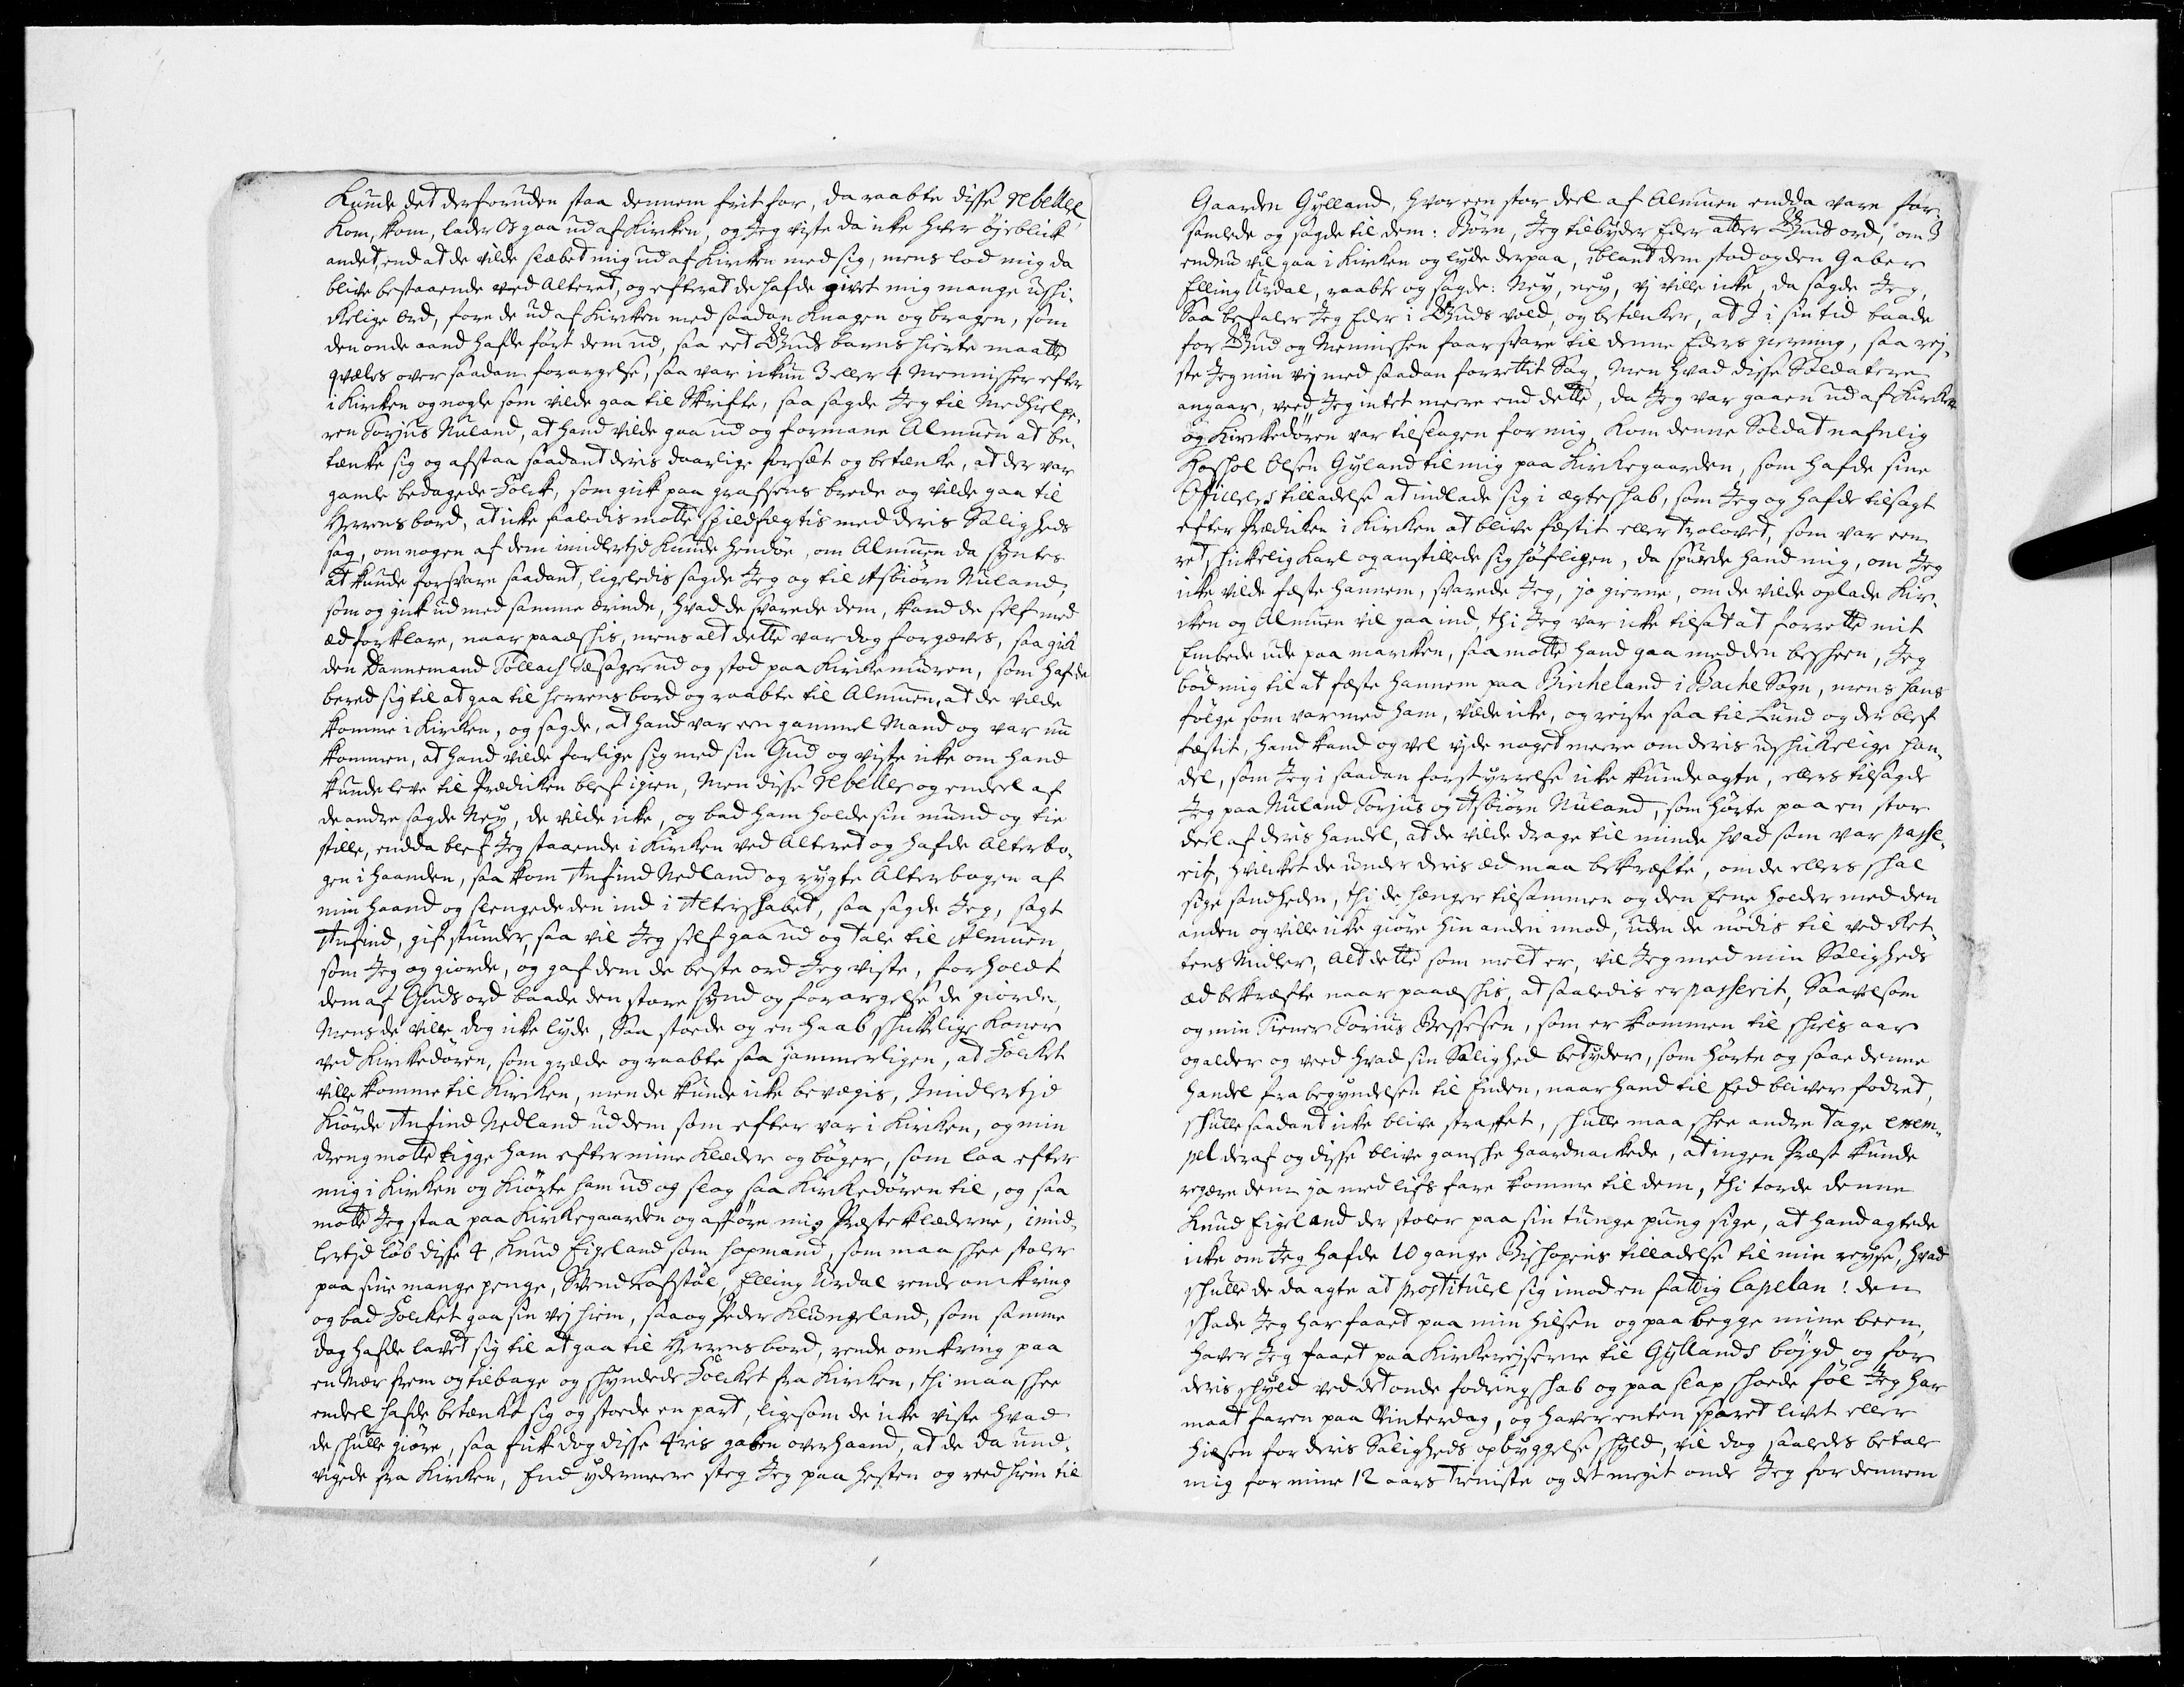 Kunde det derforuden staa dennem frit for, da raabte disse rebeller
Kom, kom, lader Os gaa ud af Kirken, og Jeg viste da icke hver øyeblick
andet, end at de vilde slæbet mig ud af Kirken med sig, mens lod mig da
blive bestaaende ved Alteret, og efterat de hafde givet mig mange uski¬
ckelige Ord, fore de ud af Kircken med saadan Knagen og bragen, som
den onde aand hafde ført dem ud, saa et Guds barns hierte maatte
qvæles over saadan forargelse, saa var ickun 3 eller 4 Mennisker efter
i Kirken og nogle som vilde gaa til Skrifte, saa sagde Jeg til Medhielpe¬
ren Torjus Nuland, at hand vilde gaa ud og formane Almuen at be¬
tenke sig og afstaa saadant deris daarlige forsæt og betænke, at der var
gamle bedagede Folck, som gick paa grafsens brede og vilde gaa til
Herrens bord, at icke saaledis motte spildfegtis med deris Saligheds
sag, om nogen af dem imidlertjd kunde hendøe, om Almuen da syntes
at kunde forsvare saadant, ligeledis sagde Jeg og til Asbiørn Nuland,
som og gick ud med samme ærinde, hvad de svarede dem, kand de self med
æd forklare, naar paaæskis, mens alt dette var dog forgæves, saa gick
den Dannemand Tollach Tesager ud og stod paa Kirkemuren, som hafde
bered sig til at gaa til Herrens bord og raabte til Almuen, at de vilde
komme i Kirken, og sagde, at hand var een gammel Mand og var nu
kommen, at hand vilde forlige sig med sin Gud og viste icke om hand
kunde leve til Prædicken blef igien, Men disse rebeller og endeel af
de andre sagde Ney, de vilde icke, og bad ham holde sin mund og tie
stille, endda blef Jeg staaende i Kirken ved Alteret og hafde Alterbo¬
gen i haanden, saa kom Anfind Nedland og rygte Alterbogen af
min haand og slengede den ind i Alterskabet, saa sagde Jeg, sagt
Anfind, gif stunder, saa vil Jeg self gaa ud og tale til Almuen
som Jeg og giorde, og gaf dem de beste ord Jeg viste, forholdt
dem af Guds ord baade den store synd og forargelse de giorde,
Mens de ville dog icke lyde, Saa stoede og en haab skickelige koner
ved Kirkedøren, som græde og raabte saa jammerligen, at Folcket
ville komme til Kirken, men de kunde icke bevægis, Imidlertjd
kiørde Anfind Nedland ud dem som efter var i Kirken, og min
dreng motte tigge ham efter mine klæder og bøger, som laa efter
mig i Kirken og kiørte ham ud og slog saa Kirkedøren til, og saa
motte Jeg staa paa Kirkegaarden og afføre mig Præsteklæderne, imid¬
lertjd løb disse 4, Knud Eigeland som hopmand, som maa skee stoler
paa sine mange penge, Svend Lofstøl, Elling Urdal rende omkring
og bad Folcket gaa sin vej hiem, saa og Peder Klungeland, som samme
dag hafde lavet sig til at gaa til Herrens bord, rende omkring paa
en Mær frem og tilbage og skyndede Folcket fra Kirken, thi maa skee
endeel hafde betenkt sig og stoede en part, ligesom de icke viste hvad
de skulle giøre, saa fick dog disse 4ris gaben overhaand, at de da und¬
vigede fra Kirken, End ydermeere steg Jeg paa hesten og reed hiem til
Gaarden Gylland, hvor een stor deel af Almuen endda vare for¬
samlede og sagde til dem: Børn, Jeg tilbyder Eder atter Guds ord, om I
endnu vil gaa i Kircken og lyde derpaa, iblant dem stod og den Gaber
Elling Urdal, raabte og sagde: Ney, ney, vj ville icke, da sagde Jeg,
Saa befaler Jeg Eder i Guds vold, og betænker, at I i sin tid baade
for Gud og Mennisken faar svare til denne Eders gierning, saa rej¬
ste Jeg min vej med saadan forrettit Sag, Men hvad disse Soldatere
angaar, veed Jeg intet meere end dette, da Jeg var gaaen ud af Kircken
og Kirckedøren var tilslagen for mig, Kom denne Soldat nafnlig
Hoskol Olsen Gyland til mig paa Kirkegaarden, som hafde sine
Officeers tilladelse at indlade sig i ægteskab, som Jeg og hafde tilsagt
efter Prædicken i Kircken at blive fæstit eller trolovet, som var een
ret skickelig karl og anstillede sig høfligen, da spurde hand mig, om Jeg
icke vilde fæste hannem, svarede Jeg, jo gierne, om de vilde oplade Kir¬
cken og Almuen vil gaa ind, thi Jeg var icke tilsat at forrette mit
Embede ude paa marcken, saa motte hand gaa med den besked, Jeg
bød mig til at fæste hannem paa Bircheland i Bache Sogn, mens hans
følge som var med ham, vilde icke, og reiste saa til Lund og der blef
fæstit, hand kand og vel vjde noget meere om deris uskickelige han¬
del, som Jeg i saadan forstyrrelse icke kunde agte, ellers tilsagde
Jeg paa Nuland Torjus og Asbiørn Nuland, som hørte paa en stor
deel af deris handel, at de vilde drage til minde hvad som var passe¬
rit, hvilcket de under deris æd maa bekræfte, om de ellers skal
sige sandheden, thi de henger tilsammen og den Eene holder med den
anden og ville icke giøre hin anden imod, uden de nødis til ved Ret¬
tens Midler, Alt dette som melt er, vil Jeg med min Saligheds
æd bekræfte naar paaæskis, at saaledis er passerit, Saavelsom
og min Tiener Torius Bessesen, som er kommen til skiels aar
og alder og veed hvad sin Salighed betyder, som hørte og saae denne
handel fra begyndelsen til Enden, naar hand til Eed bliver fodret,
skulle saadant icke blive straffet, skulle maa skee andre tage exem¬
pel deraf og disse blive ganske haardnackede, at ingen Præst kunde
regere dem ja med lifs fare komme til dem, thi torde denne
Knud Eigeland der stoler paa sin tunge pung sige, at hand agtede
icke om Jeg hafde 10 gange Biskopens tilladelse til min reyse, hvad
skulle de da agte at prostituere sig imod en fattig Capelan! den
skade Jeg har faaet paa min hilsen og paa begge mine been,
haver Jeg faaet paa Kirkereyserne til Gyllands bøygd og for
deris skyld ved det onde fodringskab og paa slap skoede føl Jeg har
maat faren paa Vinterdag, og haver enten sparet livet eller
hilsen for deris Saligheds opbyggelse skyld, vil dog saaledes betale
mig for mine 12 aars tieniste og det megit onde Jeg for dennem